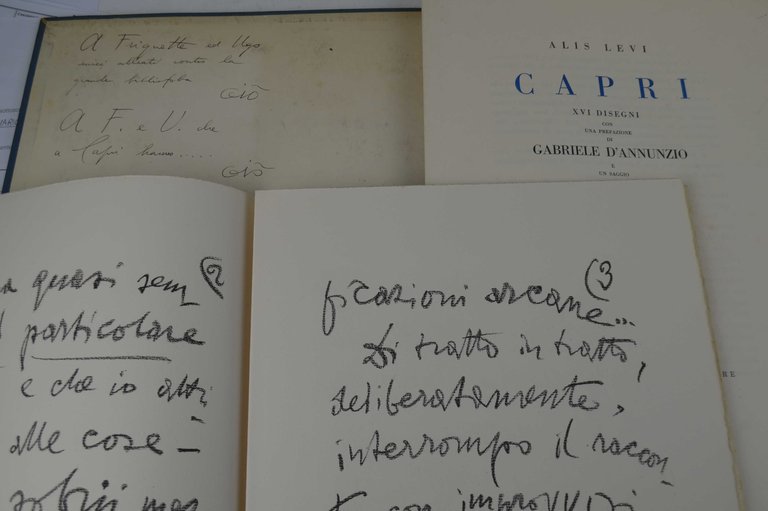 A Friquette ed Ugo
amici alleati contro la
grande bibliofila
Giò
A F. e U. che
a Capri hanno.....
Giò
ALIS LEVI
CAPRI
XVI DISEGNI
CON
UNA PREFAZIONE
DI
GABRIELE D'ANNUNZIO
E
UN SAGGIO
RE
(2
a quasi sem
particolare
e che io attri
alle cose –
(3
ficazioni arcane...
Di tratto in tratto,
deliberatamente,
interrompo il raccon
con improvvisi